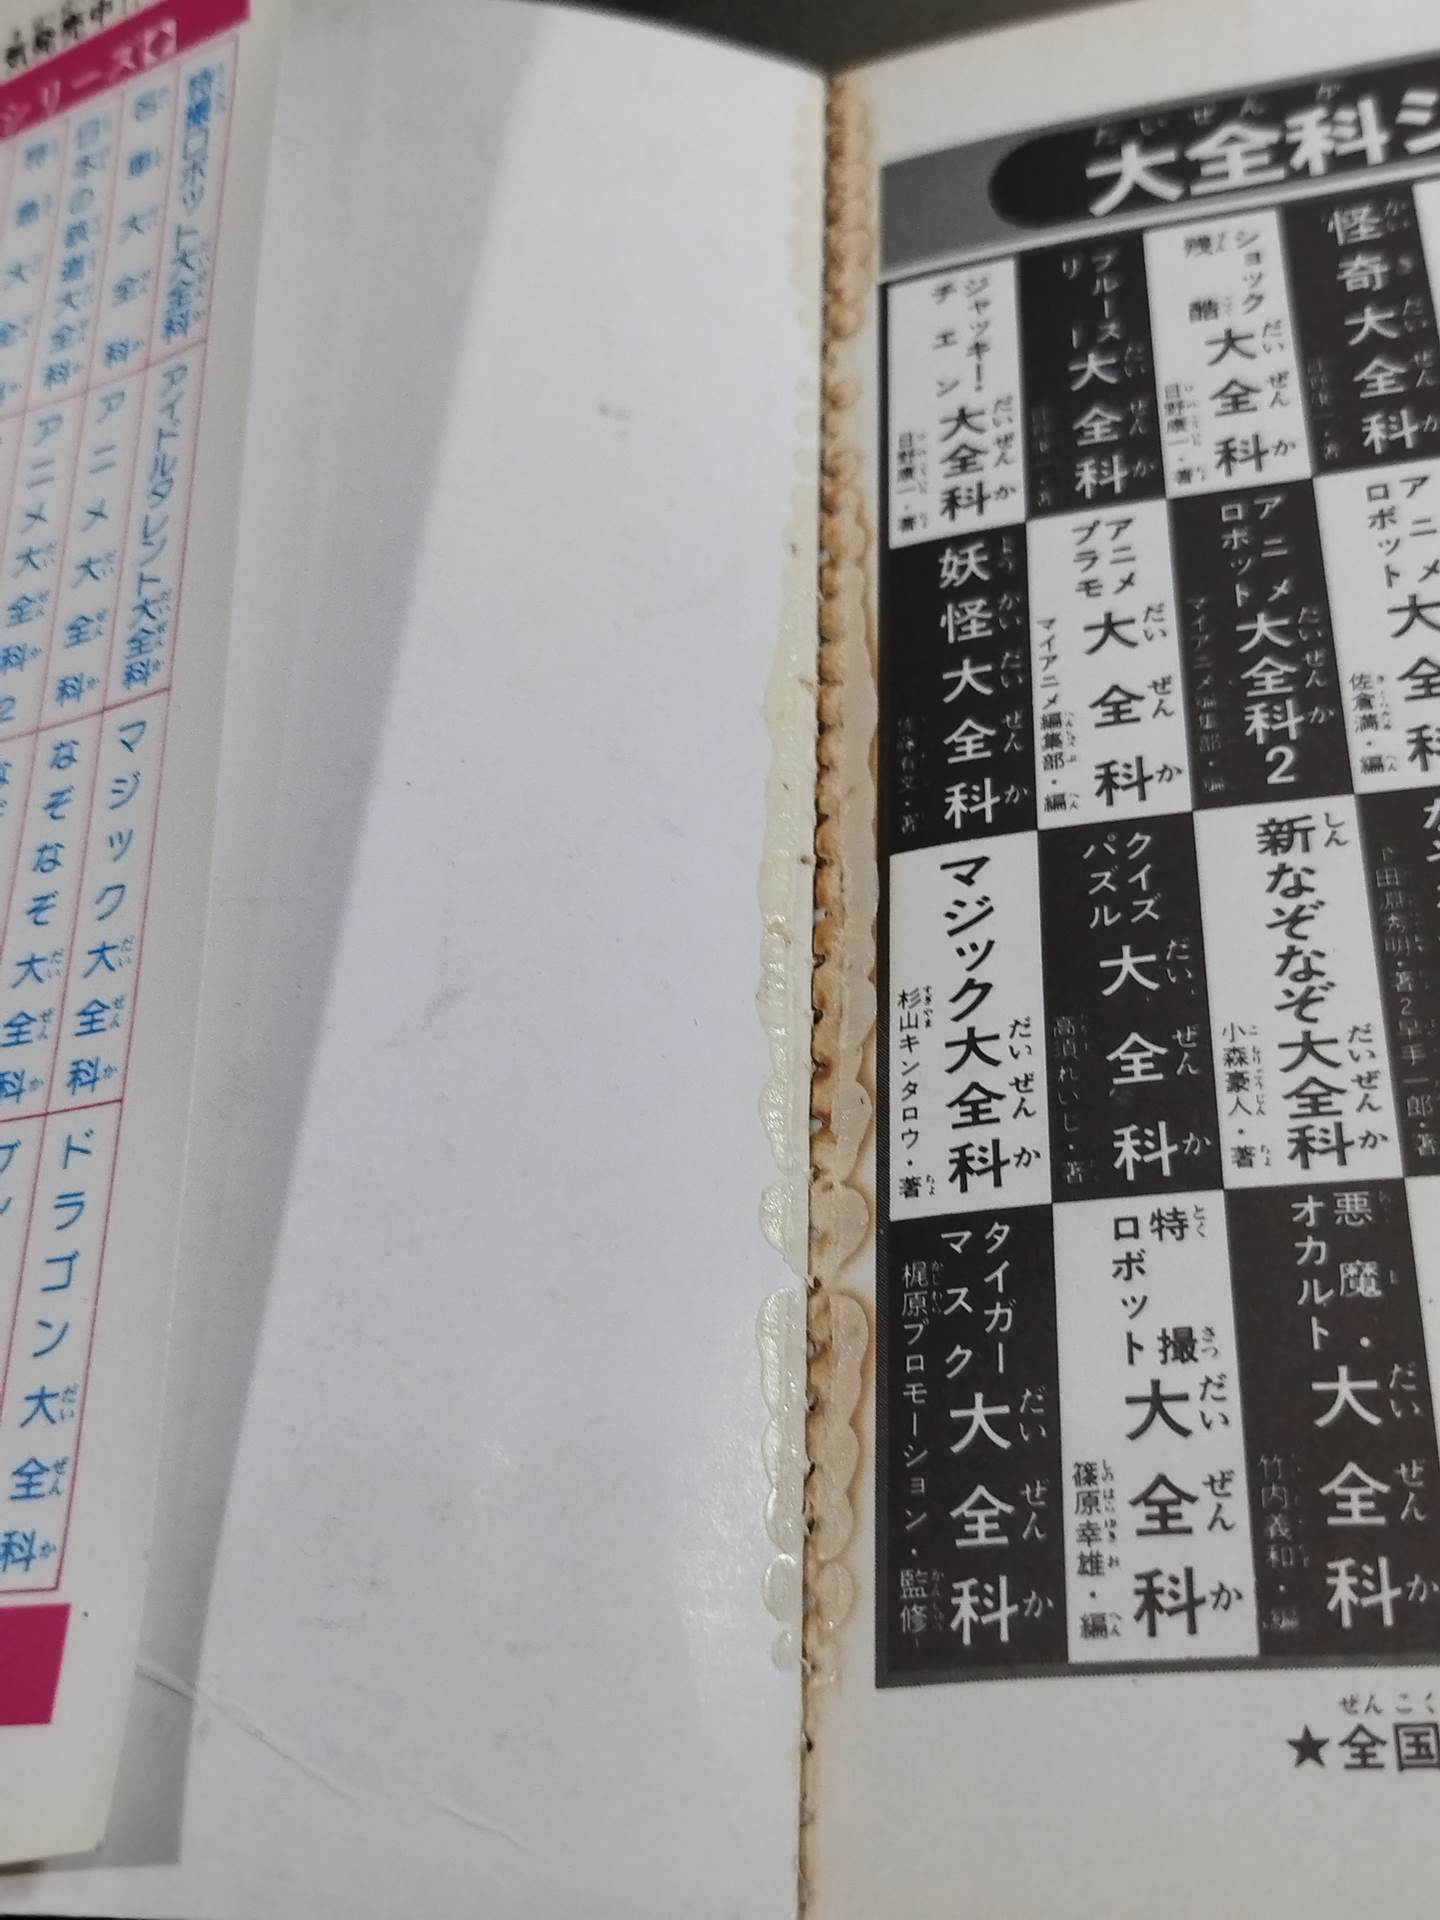 シリーズ
特撮ロボット大全科
大全科
日本の鉄道大全科
特急大全
アイドルタレント大全科
アニメ大全科
アニメ大全科2
マジック大全科
なぞなぞ大全科
全科
ドラゴン大全科
大全科シ
だいぜんか
怪奇大全科
ショック残酷大全科
日野康一・著
ブルース・リー大全科
ジャッキー!チェン大全科
日野康一・著
アニメロボット大全科
佐倉満・編
アニメロボット大全科2
マイアニメ編集部・編
アニメプラモ大全科
マイアニメ編集部・編
妖怪大全科
佐藤有文・著
新なぞなぞ大全科
小森豪人・著
クイズパズル大全科
高須れいじ・著
マジック大全科
杉山キンタロウ・著
悪魔・オカルト大全科
竹内義和・編
特撮ロボット大全科
篠原幸雄・編
タイガーマスク大全科
梶原プロモーション・監修
★全国